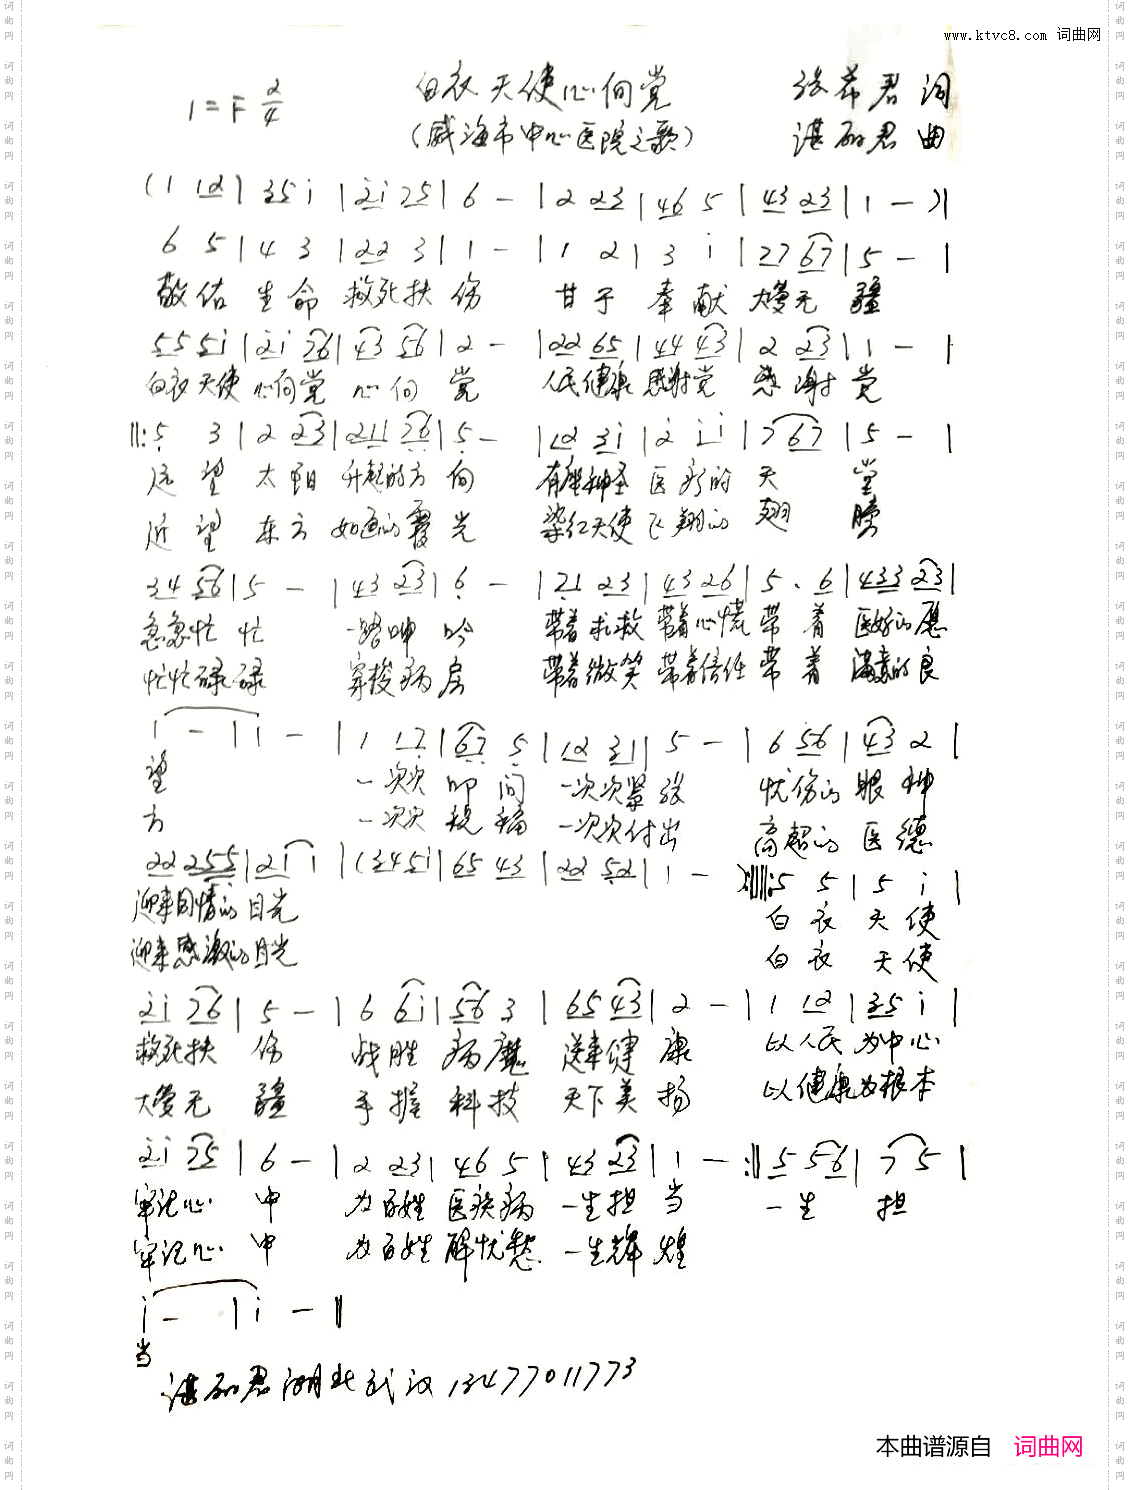 www.ktvc8.com 词曲网
白衣天使心向党
1=F 2/4
(威海市中心医院之歌)
张希君 词
谌丽君 曲
(1 12 | 35 i | 2i 75 | 6 - | 2 23 | 46 5 | 43 23 | 1 - )|
6 5 | 4 3 | 22 3 | 1 - | 1 2 | 3 i | 27 67 | 5 - |
敬佑 生命 救死扶 伤 甘于 奉献 大爱无 疆
55 5i | 2i 76 | 43 56 | 2 - | 22 65 | 44 43 | 2 23 | 1 - |
白衣天使 心向党 心向 党 人民健康 感谢党 感谢 党
‖: 5 3 | 2 23 | 211 76 | 5 - | 12 3i | 2 i i | 7 67 | 5 - |
远望 太阳 升起的方 向 有座神圣 医疗的 天 堂
近望 东方 如画的霞 光 染红天使 飞翔的 翅 膀
34 56 | 5 - | 43 23 | 6 - | 21 23 | 43 26 | 5 . 6 | 433 23 |
急急忙 忙 一路呻 吟 带着求救 带着心慌 带 着 医好的愿
忙忙碌 碌 穿梭病 房 带着微笑 带着信任 带 着 满意的良
1 - | 1 - | 1 17 | 67 5 | 12 31 | 5 - | 6 56 | 43 2 |
望 一次次 叩问 一次次紧张 忧伤的 眼神
方 一次次 一次次付出 高超的 医德
22 255 | 21 1 | (345i | 65 43 | 22 52 | 1 - ):‖: 5 5 | 5 i |
迎来同情的 目光 白衣 天使
迎来感激的 目光 白衣 天使
2i 76 | 5 - | 6 6i | 56 3 | 65 43 | 2 - | 1 12 | 35 i |
救死扶 伤 战胜 病魔 送来健 康 以人民 为中心
大爱无 疆 手握 科技 天下美 扬 以健康 为根本
2i 75 | 6 - | 2 23 | 46 5 | 43 23 | 1 - :‖ 5 56 | 7 5 |
牢记心 中 为百姓 医疾病 一生担 当 一生 担
牢记心 中 为百姓 解忧愁 一生辉 煌
i - | i - ‖
当
谌丽君 湖北武汉 13477011773
本曲谱源自 词曲网